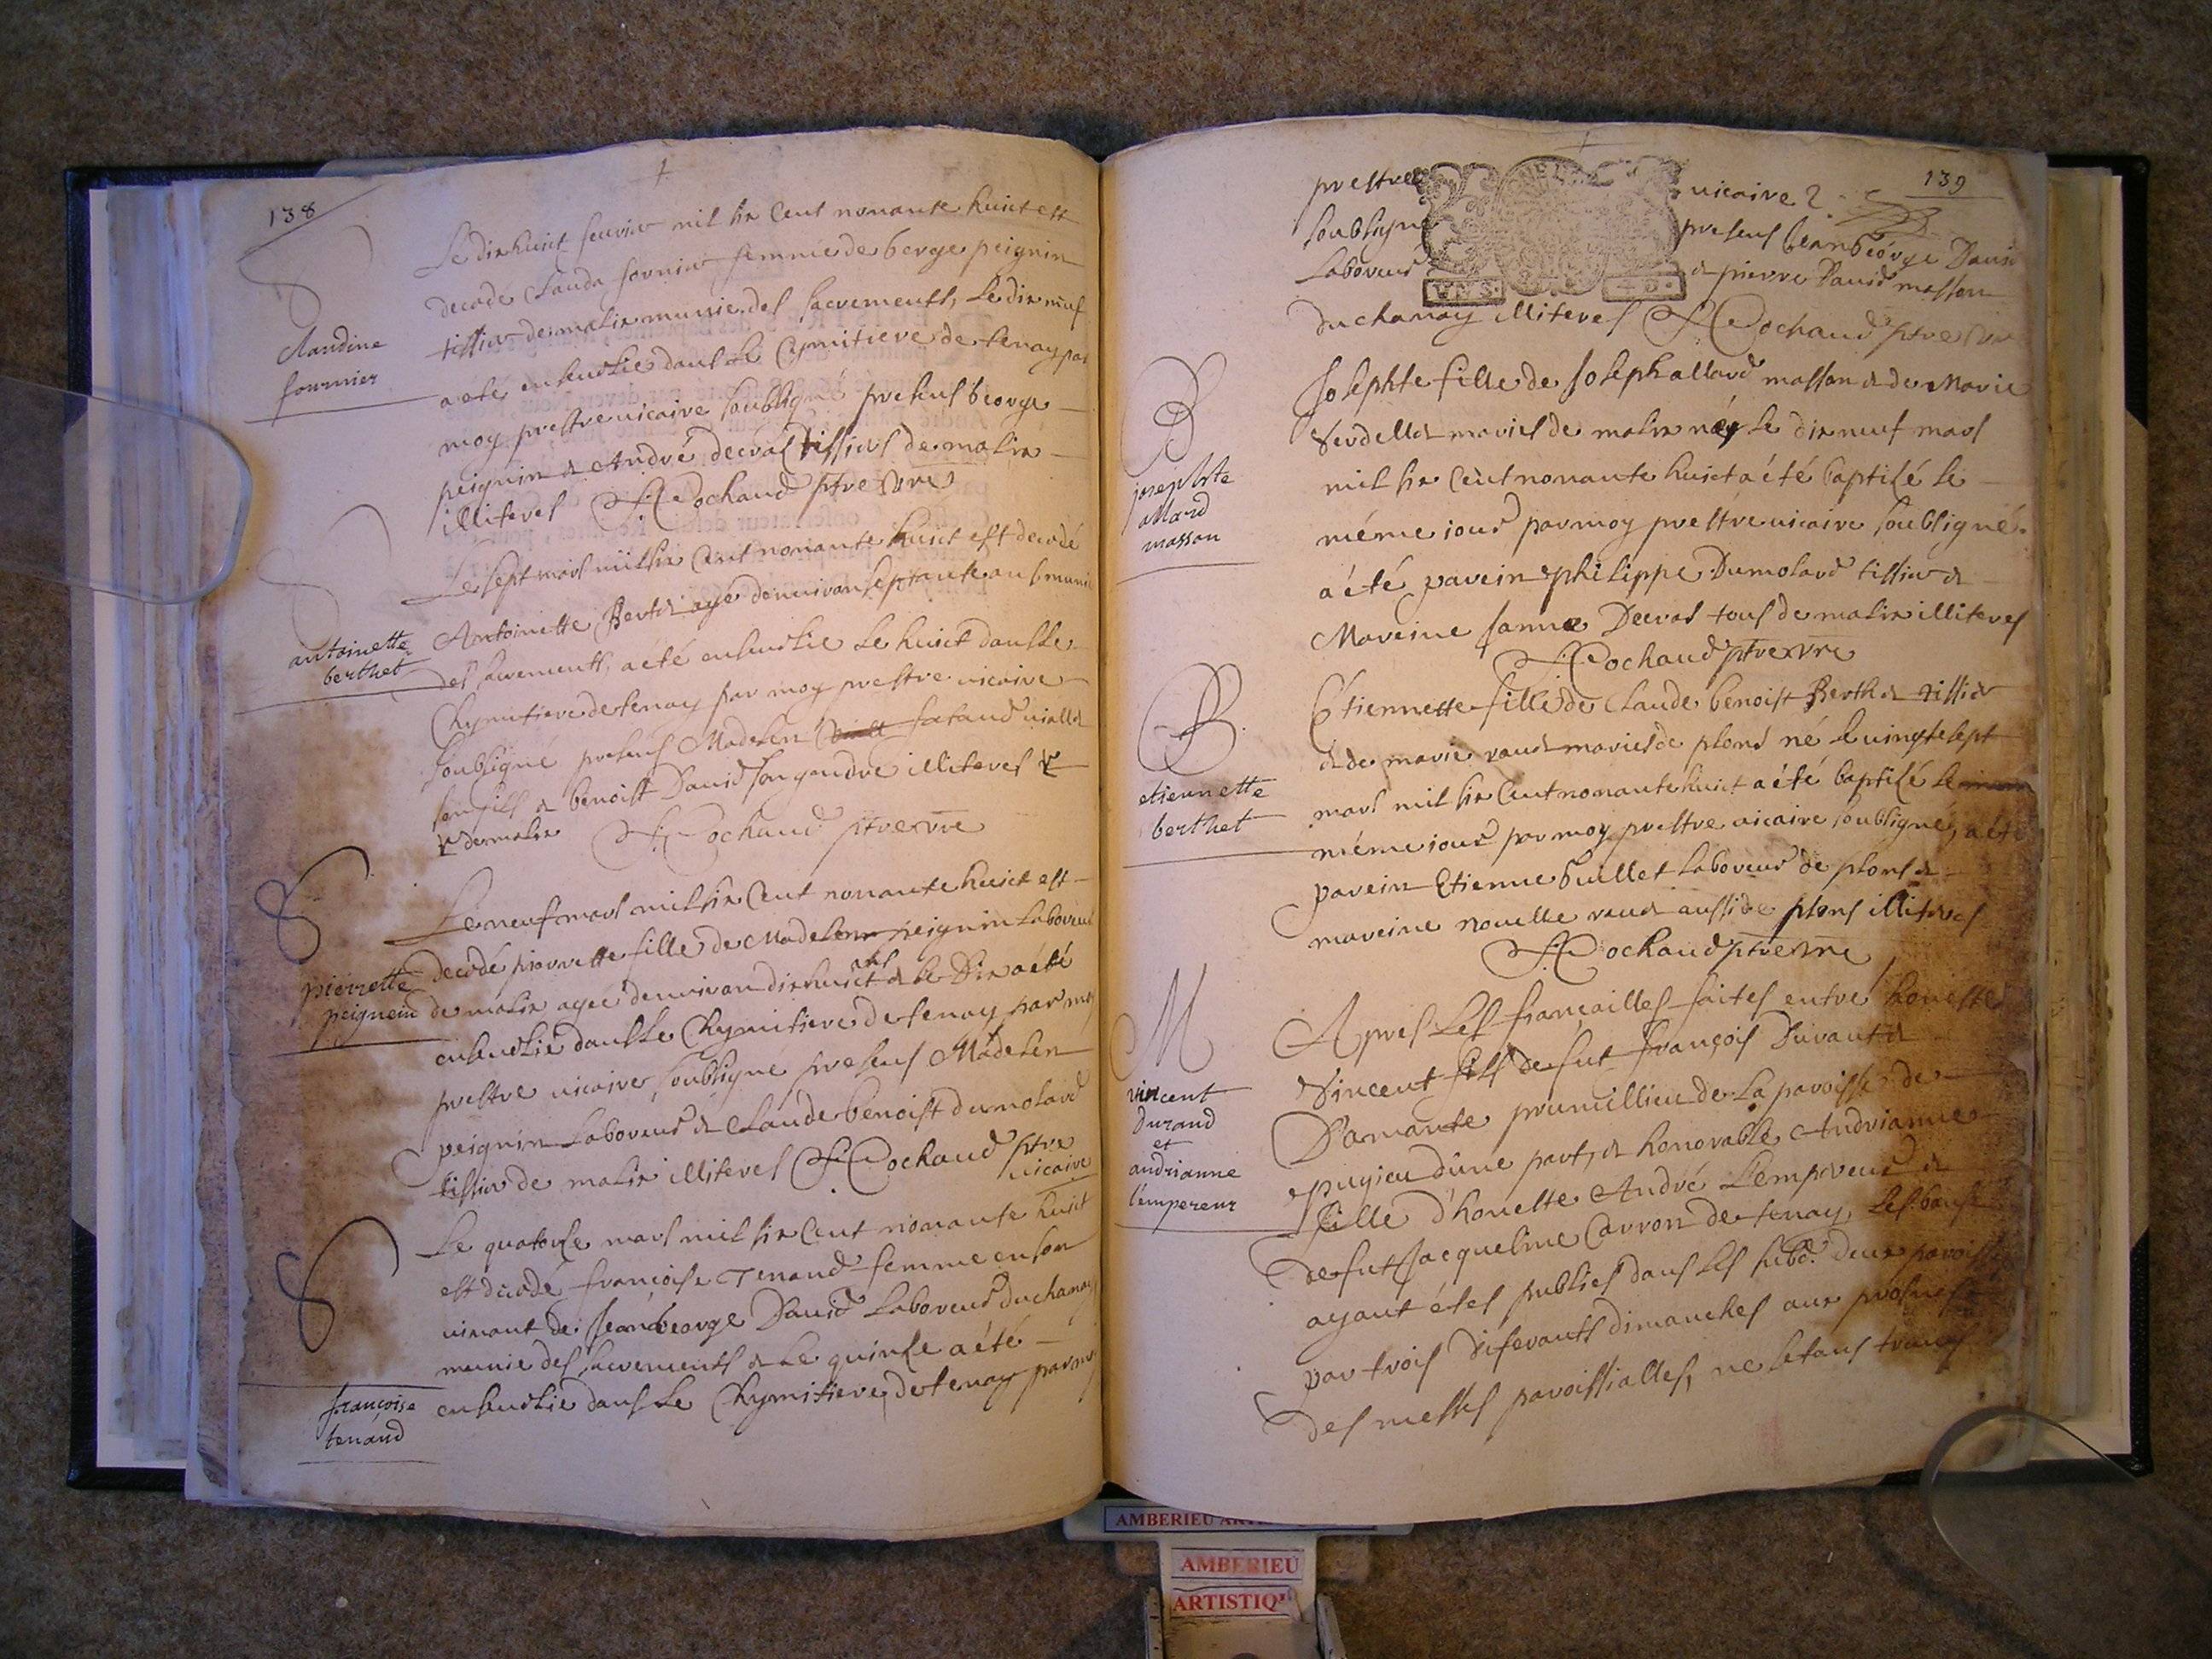 138
Le dixhuict feuvier mil six cent nonante huict est
decodé Clauda fornier femme de george peignin
tissier de malix munie des sacrements, Le dix neuf
a eté ensevelie dans le Cymitiere de tenay par
moy prestre vicaire soubsigné presens George
peignin et André decros tissiers de malix
illiteres F Cochaud ptre vire
Claudine
fournier
Le sept mars mil six cent nonante huict est decodé
Antoinette Berthet agé denviron septante ans munie
des sacrements, a eté ensevelie le huict dans le
Chymitiere de tenay par moy prestre vicaire
soubsigné presens Madelen fataud viallet
son fils et benoist David son gendre illiteres
de malix F Cochaud ptre vire
antoinette
berthet
Le neuf mars mil six cent nonante huict est
decodé pierrette fille de Madelen peignin Laboreur
de malix agée denviron dixhuict ans et le Dix a été
ensevelie dans le Chymitiere de tenay par moy
prestre vicaire soubsigné presens Madelen
peignin Laboreur et Claude benoist dumolard
tissier de malix illiteres F Cochaud ptre
vicaire
pierrette
peignein
Le quatorse mars mil six cent nonante huict
est decodé françoise Tenand femme en son
vivant de Jean George David Laboreur du chanay
munie des sacrements et le quinse a été
ensevelie dans le Chymitiere de tenay par moy
françoise
tenand
139
prestre vicaire
soubsigné presens Jean George David
Laboreur et pierre David masson
du chanay illiteres F Cochaud ptre vire
Josephte fille de Joseph allard masson et de Marie
Verdellet mariés de malix néy le dix neuf mars
mil six cent nonante huict a été baptisé le
méme iour par moy prestre vicaire soubsigné
a été parein philippe Dumolard tissier et
Mareine Janne Decros tous de malix illiteres
F Cochaud ptre vire
B
josephte
allard
masson
Etiennette fille de Claude benoist Berthet tissier
et de marie ravet mariés de plons né le vingtesept
mars mil six cent nonante huict a été baptisé le
méme iour par moy prestre vicaire soubsigné, a été
parein Etienne Guillet Laboreur de plons et
mareine novelle ravet aussi de plons illiteres
F Cochaud ptre vire
B
etiennette
berthet
Apres Les françailles faites entre honeste
Vincent fils de fut françois Durant et
Damante prumillieu de La paroisse de
pugieu d'une part, et honorable Andrianne
fille d'honeste André Lempereur et
de fut Jacqueline Carron de tenay, Les bans
ayant étes publiés dans les susd. deux paroisses
par trois diferants dimanches aux prosnes
des messes paroissialles, ne s'etans trouvé
M
vincent
durand
et
andrianne
l'empereur
AMBERIEU
AMBERIEU
ARTISTIQ